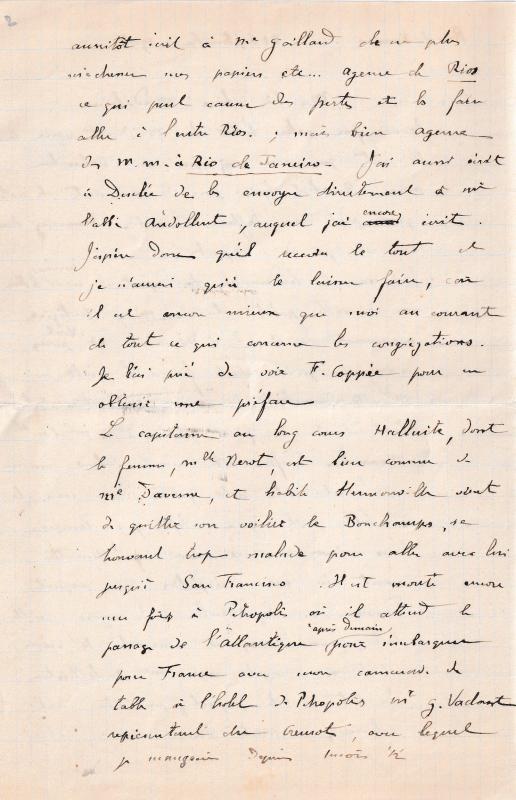 2
aussitôt écrit à Mr Gaillard de ne plus
 nos papiers etc... agence de Rios
ce qui peut causer des pertes et les faire
aller à l'entre Rios. ; mais bien agence
des M. m. à Rio de Janeiro - J'ai aussi écrit
à Desclée de les envoyer directement à Mr
l'abbé Andollent, auquel j'ai encore écrit.
J'espère donc qu'il recevra le tout et
je n'aurai qu'à le laisser faire, car
il est encore mieux que moi au courant
de tout ce qui concerne les congrégations.
Je l'ai prié de voir F. Coppée pour en
obtenir une préface
Le capitaine au long cours Halluite, dont
la femme, Mlle Nerot, est bien connue de
Me Daverne, et habite vient
de quitter son voilier le Bonchamps, se
trouvant trop malade pour aller avec lui
jusqu'à San Francisco. Il est monté encore
une fois à Pétropolis où il attend le
passage de l'Atlantique après demain pour s'embarquer
pour France avec mon camarade de
table à l'hôtel de Pétropolis Mr G.
représentant du Creusot, avec lequel
je mangeais depuis mois ½